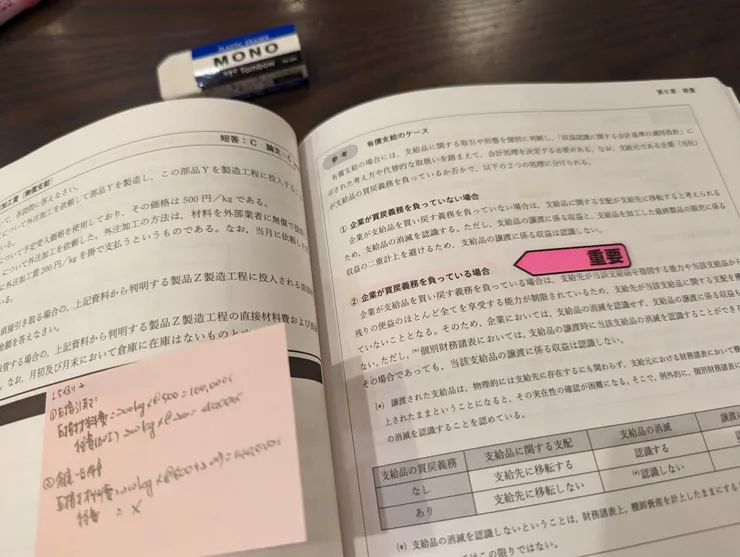 PLASTIC ERASER
MONO
Tombow
短答：C 論文：C
加工賃（無償支給）
て、各設問に答えなさい。
て外注加工を依頼して部品Yを製造し、この部品Yを製造工程に投入する
いる。
について予定受入価格を使用しており、その価格は500円／kgである。
について外注加工を依頼した。外注加工の方法は、材料を外部業者に無償で
に外注加工賃200円／kgを掛で支払うというものである。なお、当月に依頼した
直接引き取る場合の、上記資料から判明する製品Z製造工程に投入される
金額を答えなさい。
する場合の、上記資料から判明する製品Z製造工程の直接材料費および
なお、月初及び月末において倉庫に在庫はないものと
第5章 経費
参考 有償支給のケース
有償支給の場合には、支給品に関する取引や形態を個別に判断し、「収益認識に関する会計基準の適用指針」に
示された考え方や代替的な取扱いを踏まえて、会計処理を決定する必要がある。なお、支給元である企業（当社）
が支給品の買戻義務を負っているか否かで、以下の2つの処理に分けられる。
① 企業が買戻義務を負っていない場合
企業が支給品を買い戻す義務を負っていない場合は、支給品に関する支配が支給先に移転すると考えられる
ため、支給品の消滅を認識する。ただし、支給品の譲渡に係る収益と、支給品を加工した最終製品の販売に係る
収益の二重計上を避けるため、支給品の譲渡に係る収益は認識しない。
重要
② 企業が買戻義務を負っている場合
企業が支給品を買い戻す義務を負っている場合は、支給先が当該支給品を指図する能力や当該支給品から
残りの便益のほとんど全てを享受する能力が制限されているため、支給先が当該支給品に対する支配を獲
ていないこととなる。そのため、企業においては、支給品の消滅を認識せず、支給品の譲渡に係る収益も
ない。ただし、(*)個別財務諸表においては、支給品の譲渡時に当該支給品の消滅を認識することができ
その場合であっても、当該支給品の譲渡に係る収益は認識しない。
(*) 譲渡された支給品は、物理的には支給先に存在するにも関わらず、支給元における財務諸表において棚
上されたままということになると、その実在性の確認が困難になる。そこで、例外的に、個別財務諸表に
の消滅を認識することを認めている。
支給品の買戻義務 支給品に関する支配 支給品の消滅 譲渡に
なし 支給先に移転する 認識する
あり 支給先に移転しない (*)認識しない
(*) 支給品の消滅を認識しないということは、財務諸表上、棚卸資産を計上したままにする
はこの限りではない。